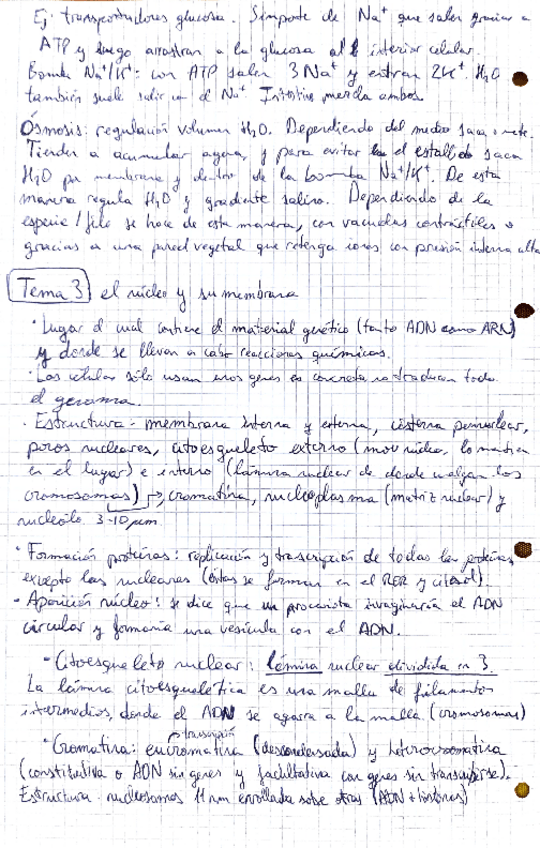 Ej: transportadores glucosa. Simporte de Na⁺ que salen gracias a
ATP y luego arrastran a la glucosa al interior celular.
Bomba Na⁺/K⁺: con ATP salen 3 Na⁺ y entran 2K⁺. H₂O
también suele salir con el Na⁺. Intestino mezcla ambos.
Ósmosis: regulación volumen H₂O. Dependiendo del medio saca o mete.
Tienden a acumular agua, y para evitar el estallido saca
H₂O por membrana y dentro de la bomba Na⁺/K⁺. De esta
manera regula H₂O y gradiente salino. Dependiendo de la
especie/filo se hace de esta manera, con vacuolas contráctiles o
gracias a una pared vegetal que retenga iones con presión interna alta
Tema 3 el núcleo y su membrana
· Lugar el cual contiene el material genético (tanto ADN como ARN)
y donde se llevan a cabo reacciones químicas.
· Las células sólo usan unos genes en concreto no traducen todo
el genoma.
· Estructura - membrana interna y externa, cisterna perinuclear,
poros nucleares, citoesqueleto externo (mov núcleo, lo mantiene
en el lugar) e interno (lámina nuclear de donde cuelgan los
cromosomas) → cromatina, nucleoplasma (matriz nuclear) y
nucleolo. 3-10 µm.
· Formación proteínas: replicación y transcripción de todas las proteínas
excepto las nucleares (éstas se forman en el RER y citosol).
- Aparición núcleo: se dice que un procariota invaginaría el ADN
circular y formaría una vesícula con el ADN.
- Citoesqueleto nuclear: lámina nuclear dividida en 3.
La lámina citoesquelética es una malla de filamentos
intermedios, donde el ADN se agarra a la malla. (cromosomas)
transcripción
· Cromatina: eucromatina (descondensada) y heterocromatina
(constitutiva o ADN sin genes y facultativa con genes sin transcribirse).
Estructura - nucleosomas 11 nm enrollada sobre otras (ADN + histonas)